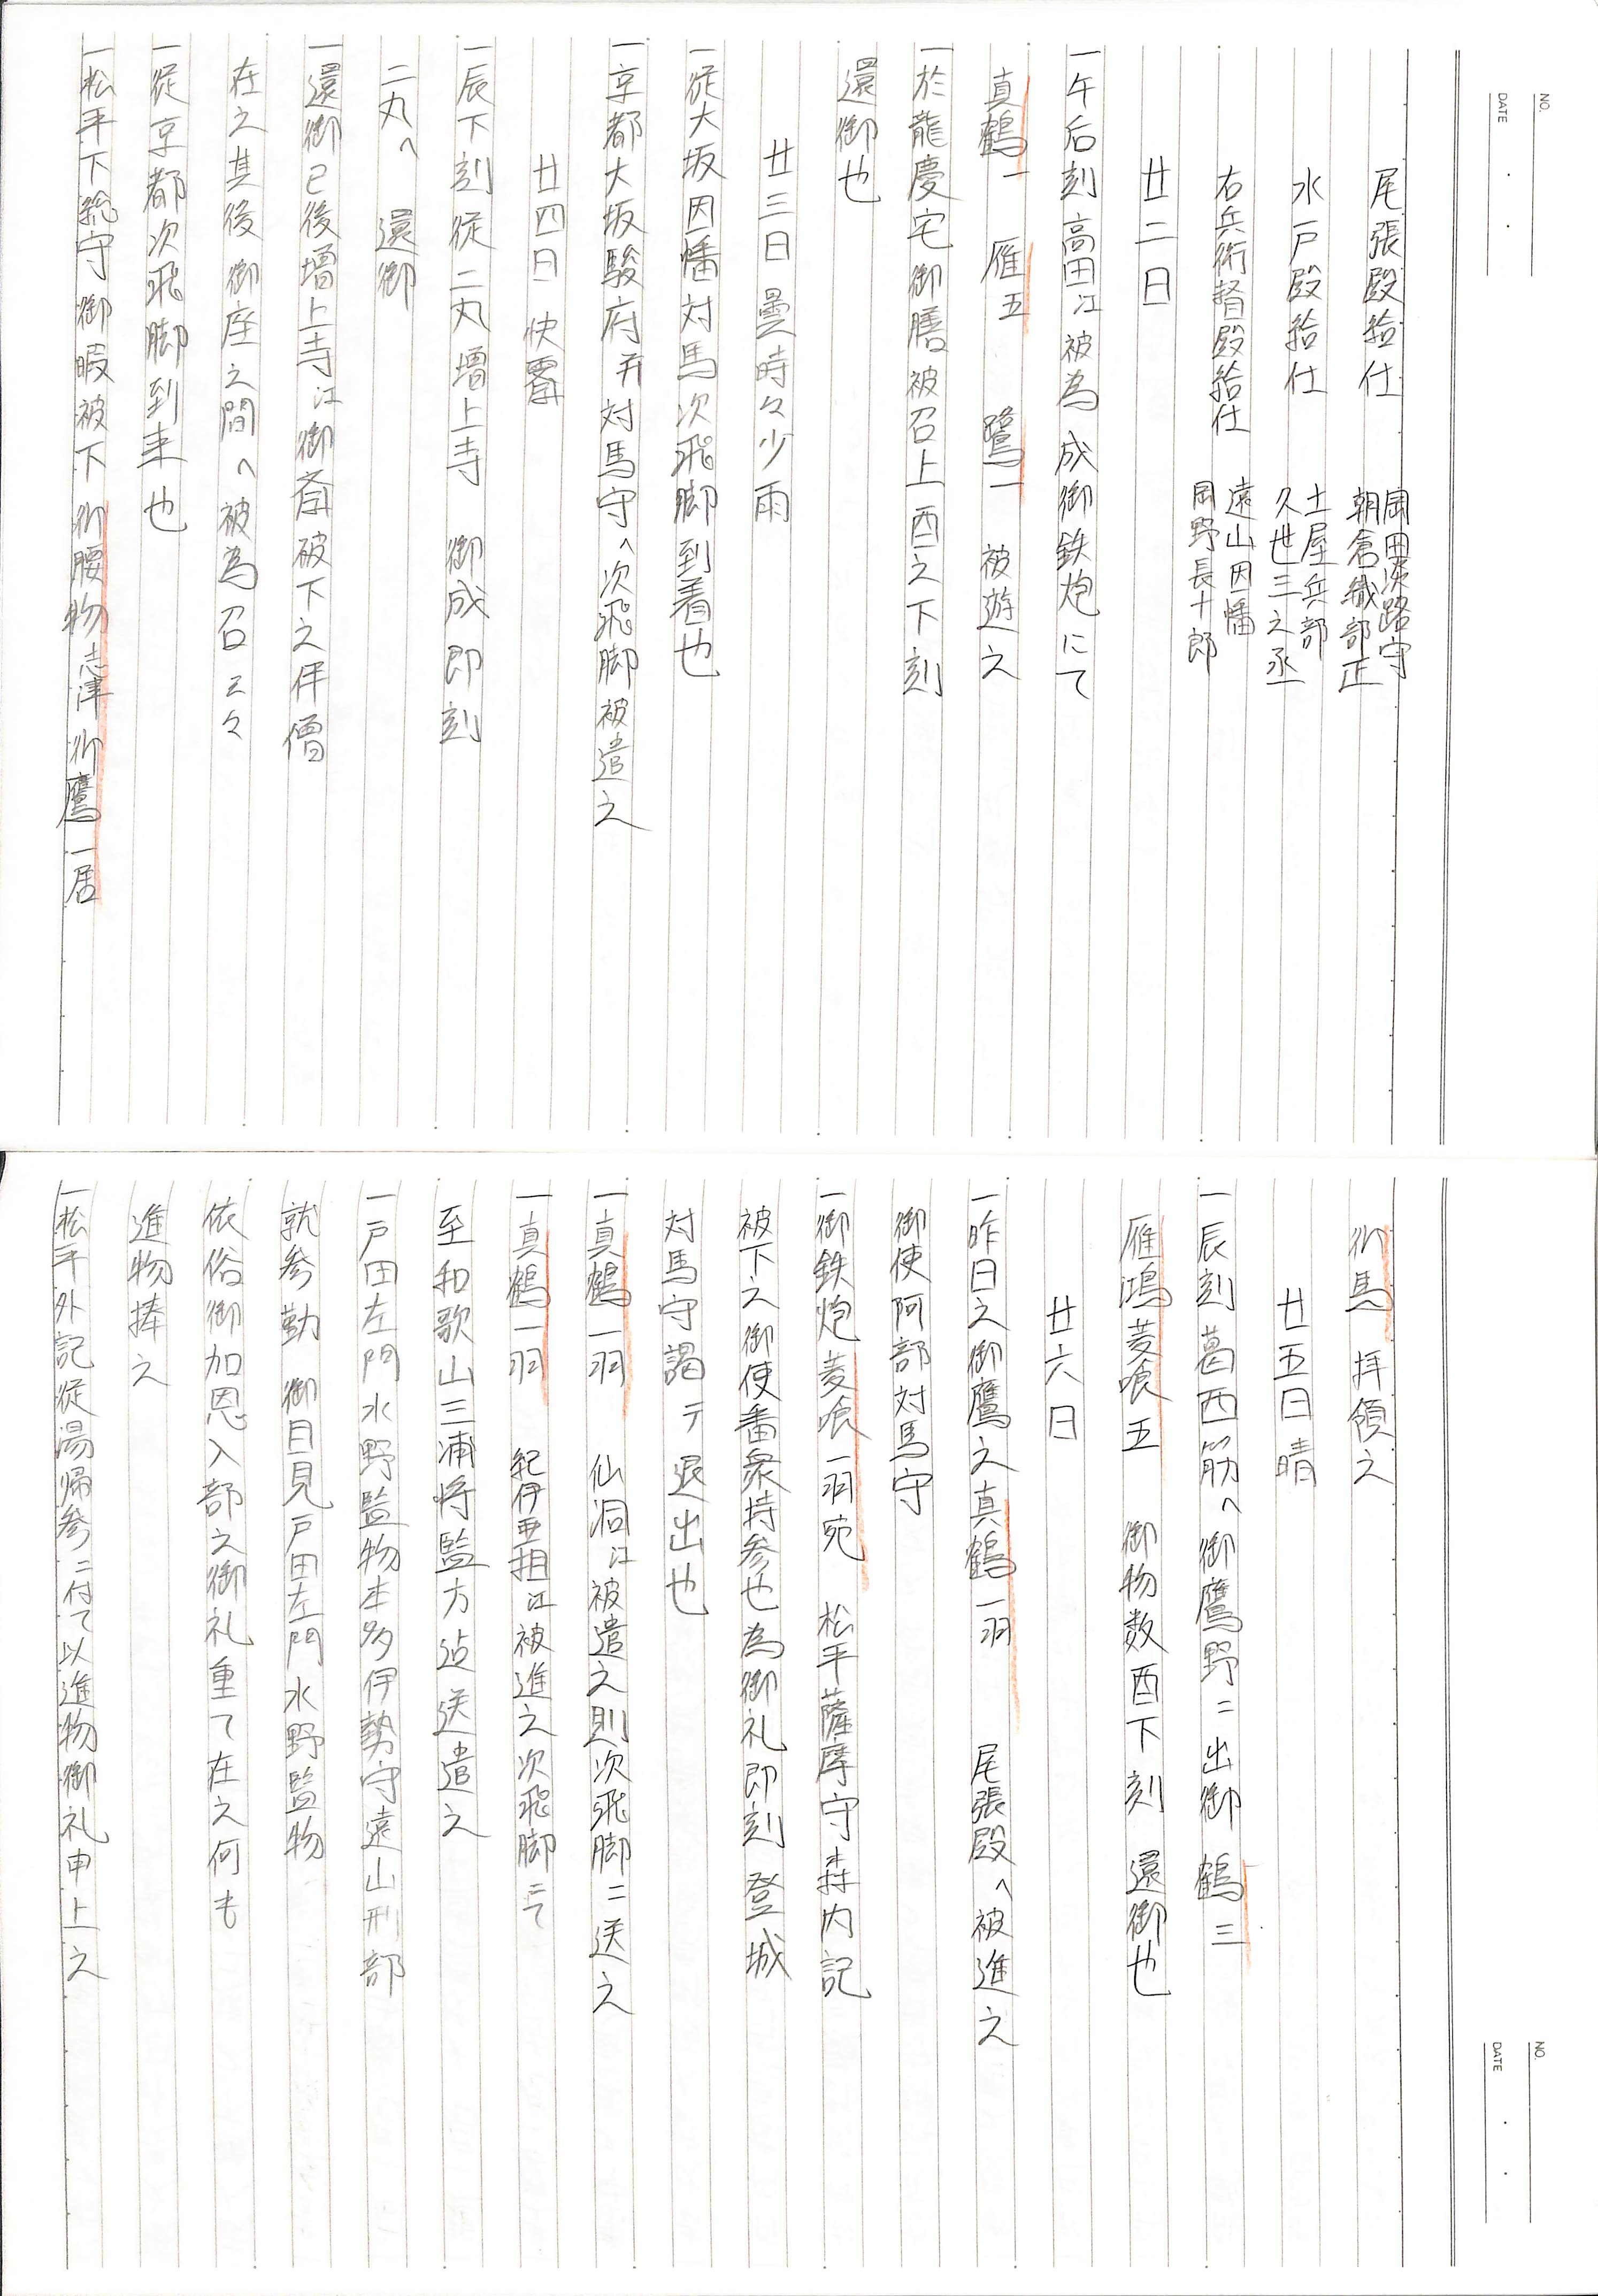 NO.
DATE
尾張殿給仕 岡田淡路守 朝倉織部正
水戸殿給仕 土屋兵部 久世三之丞
右兵術督殿給仕 遠山因幡 岡野長十郎
廿二日
一午后刻高田江被為 成御鉄炮にて
真鶴一 雁五 鷺一 被遊之
一於龍慶宅御膳被召上酉之下刻
還御也
廿三日曇時々少雨
一従大坂因幡対馬次飛脚到着也
一京都大坂駿府并対馬守へ次飛脚被遣之
廿四日 快霽
一辰下刻従二丸増上寺 御成即刻
二丸へ 還御
一還御已後増上寺江御斎被下之伴僧
在之其後御座之間へ被為召云々
一従京都次飛脚到来也
一松平下総守御暇被下御腰物志津御鷹一居
NO.
DATE
御馬 拝領之
廿五日晴
一辰刻葛西筋へ御鷹野ニ出御 鶴三
雁鴻菱喰五 御物数酉下刻 還御也
廿六日
一昨日之御鷹之真鶴一羽 尾張殿へ被進之
御使阿部対馬守
一御鉄炮菱喰一羽宛 松平薩摩守森内記
被下之御使番衆持参也為御礼即刻登城
対馬守謁テ退出也
一真鶴一羽 仙洞江被遣之則次飛脚ニ送之
一真鶴一羽 紀伊亜相江被進之次飛脚ニて
至和歌山三浦将監方迠送遣之
一戸田左門水野監物本多伊勢守遠山刑部
就参勤 御目見戸田左門水野監物
依俗御加恩入部之御礼重て在之何も
進物捧之
一松平外記従湯帰参ニ付て以進物御礼申上之